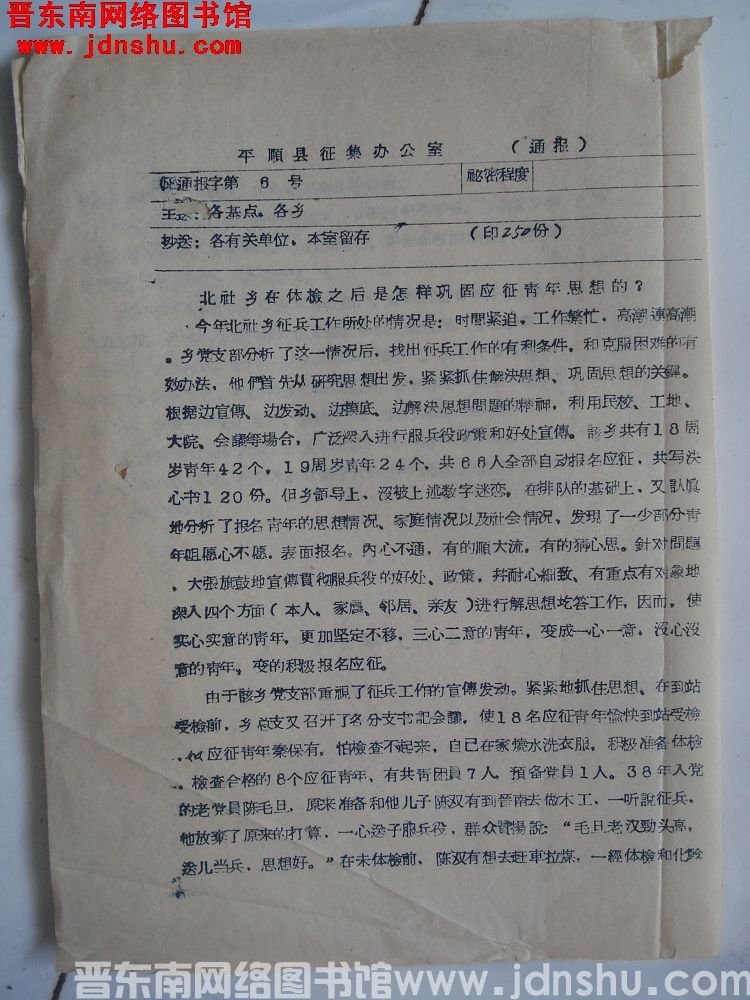 晋东南网络图书馆
www.jdnshu.com
平順县征集办公室 （通报）
通报字第 6 号 祕密程度
主送：各基点。各乡
抄送：各有关单位，本室留存 （印250份）
北社乡在体檢之后是怎样巩固应征青年思想的？
今年北社乡征兵工作所处的情况是：时間紧迫，工作繁忙，高潮連高潮
。乡党支部分析了这一情况后，找出征兵工作的有利条件，和克服困难的有
效办法，他們首先从研究思想出发，紧紧抓住解决思想、巩固思想的关鍵。
根据边宣傳、边发动、边摸底、边解决思想問題的精神，利用民校、工地、
大院、会議等場合，广泛深入进行服兵役政策和好处宣傳。該乡共有18周
岁青年42个，19周岁青年24个，共66人全部自动报名应征，共写决
心书120份。但乡領导上，沒被上述数字迷恋，在排队的基础上，又認眞
地分析了报名青年的思想情况、家庭情况以及社会情况，发現了一少部分青
年咀愿心不愿，表面报名。內心不通，有的順大流，有的猜心思。針对問題
，大張旗鼓地宣傳貫彻服兵役的好处、政策，幷耐心細致、有重点有对象地
深入四个方面（本人、家屬、邻居、亲友）进行解思想圪荅工作，因而，使
实心实意的青年，更加坚定不移，三心二意的青年，变成一心一意，沒心沒
意的青年，变的积极报名应征。
由于該乡党支部重視了征兵工作的宣傳发动。紧紧地抓住思想、在到站
受檢前，乡总支又召开了各分支书記会議，使18名应征青年愉快到站受檢
，似应征青年秦保有，怕檢查不起来，自已在家燒水洗衣服，积极准备体檢
。檢查合格的8个应征青年，有共青团員7人，預备党員1人。38年入党
的老党員陈毛旦，原来准备和他儿子陈双有到晉南去做木工，一听說征兵，
他放棄了原来的打算，一心送子服兵役，群众贊揚說：“毛旦老汉勁头高，
送儿当兵，思想好。”在未体檢前，陈双有想去赶車拉煤，一經体檢和化驗
晋东南网络图书馆 www.jdnshu.com